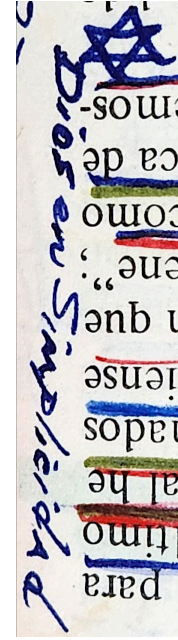 Dios en Simplicidad
para
ltimo
al he
nados
iense
n que
ene”;
como
ca de
emos-